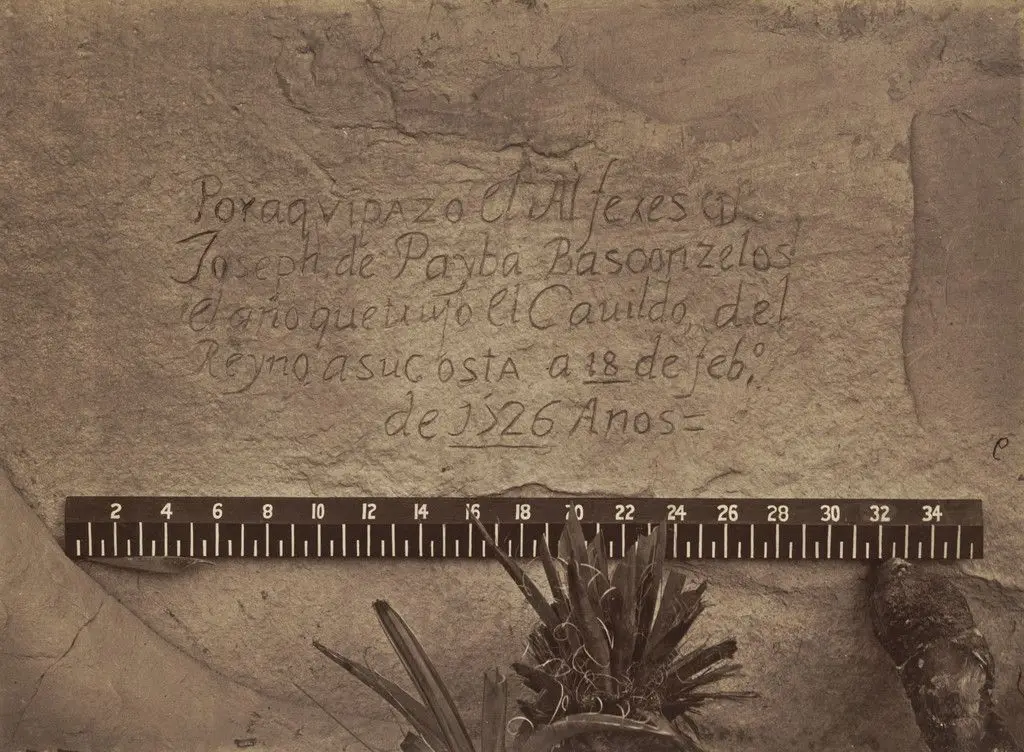 Por aqui pazo el Alferes Dn
Joseph de Payba Basconzelos
el año que tujo el Cauildo del
Reyno a su costa a 18 de febo
de 1526 Años=
2 4 6 8 10 12 14 16 18 20 22 24 26 28 30 32 34
e